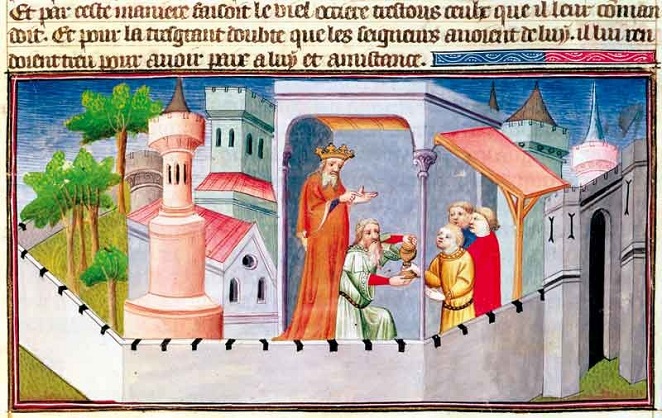 Et par ceste maniere faisoit le viel occiere trestous ceulx que il leur coman
doit. Et pour la tresgrant doubte que les seigneurs auoient de luy. il lui ren
doient treu pour auoir paix a luy et amistance.